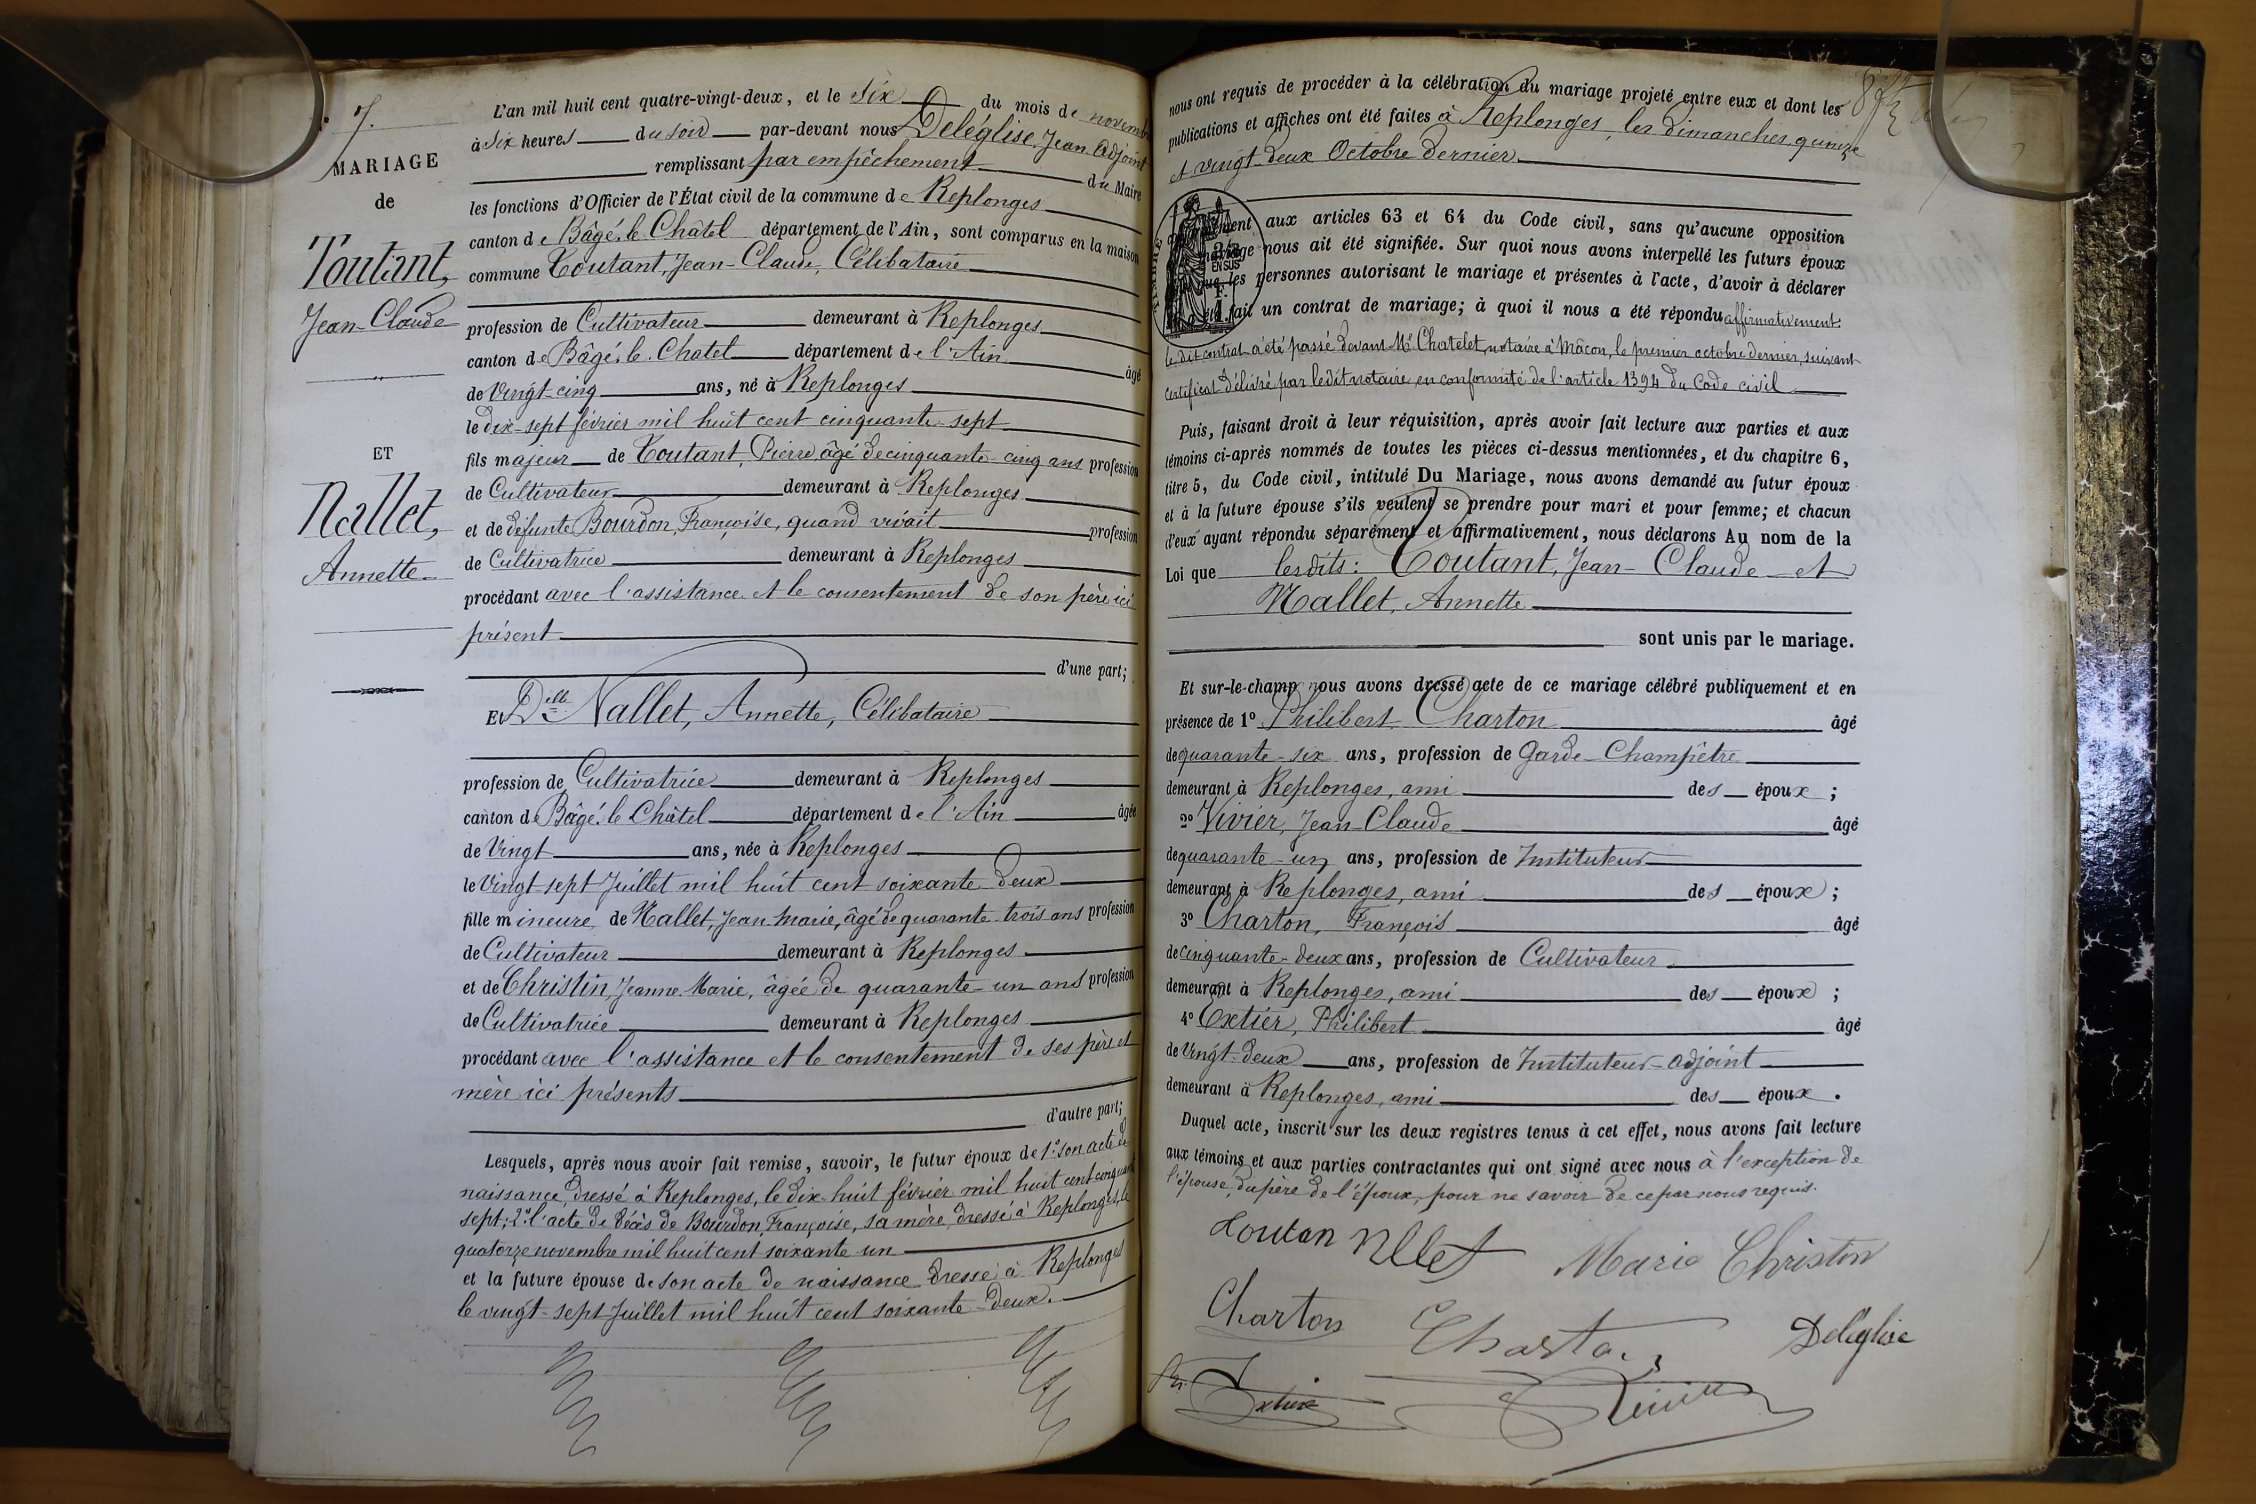 7.
MARIAGE
de
Toutant,
Jean-Claude
ET
Nallet,
Annette
L'an mil huit cent quatre-vingt-deux, et le Six du mois de novembre
à Six heures du soir par-devant nous Deléglise, Jean Adjoint
remplissant par empêchement du Maire
les fonctions d'Officier de l'État civil de la commune de Replonges
canton de Bâgé-le-Châtel département de l'Ain, sont comparus en la maison
commune Toutant, Jean-Claude, Célibataire
profession de Cultivateur demeurant à Replonges
canton de Bâgé-le-Chatel département de l'Ain âgé
de Vingt-cinq ans, né à Replonges
le dix-sept février mil huit cent cinquante-sept
fils majeur de Toutant, Pierre, âgé de cinquante-cinq ans profession
de Cultivateur demeurant à Replonges
et de défunte Bourdon, Françoise, quand vivait profession
de Cultivatrice demeurant à Replonges
procédant avec l'assistance et le consentement de son père ici
présent
d'une part;
Et Delle Nallet, Annette, Célibataire
profession de Cultivatrice demeurant à Replonges
canton de Bâgé-le-Châtel département de l'Ain âgée
de Vingt ans, née à Replonges
le Vingt-sept Juillet mil huit cent soixante-deux
fille mineure, de Nallet, Jean Marie, âgé de quarante-trois ans profession
de Cultivateur demeurant à Replonges
et de Christin, Jeanne-Marie, âgée de quarante-un ans profession
de Cultivatrice demeurant à Replonges
procédant avec l'assistance et le consentement de ses père et
mère ici présents
d'autre part;
Lesquels, après nous avoir fait remise, savoir, le futur époux de 1°: son acte de
naissance, dressé à Replonges, le dix-huit février mil huit cent cinquante
sept; 2° l'acte de décès de Bourdon, Françoise, sa mère, dressé à Replonges, le
quatorze novembre mil huit cent soixante-un
et la future épouse de son acte de naissance dressé à Replonges
le vingt-sept Juillet mil huit cent soixante-deux.
nous ont requis de procéder à la célébration du mariage projeté entre eux et dont les
publications et affiches ont été faites à Replonges, les dimanches, quinze
et vingt-deux Octobre dernier
TIMBRE
EN SUS
aux articles 63 et 64 du Code civil, sans qu'aucune opposition
mariage nous ait été signifiée. Sur quoi nous avons interpellé les futurs époux
que les personnes autorisant le mariage et présentes à l'acte, d'avoir à déclarer
été fait un contrat de mariage; à quoi il nous a été répondu affirmativement.
Le dit contrat a été passé devant Me Chatelet, notaire à Mâcon, le premier octobre dernier, suivant
certificat délivré par ledit notaire en conformité de l'article 1394 du Code civil
Puis, faisant droit à leur réquisition, après avoir fait lecture aux parties et aux
témoins ci-après nommés de toutes les pièces ci-dessus mentionnées, et du chapitre 6,
titre 5, du Code civil, intitulé Du Mariage, nous avons demandé au futur époux
et à la future épouse s'ils veulent se prendre pour mari et pour femme; et chacun
d'eux ayant répondu séparément et affirmativement, nous déclarons Au nom de la
Loi que lesdits: Toutant, Jean-Claude et
Nallet, Annette
sont unis par le mariage.
Et sur-le-champ nous avons dressé acte de ce mariage célébré publiquement et en
présence de 1° Philibert Charton âgé
de quarante-six ans, profession de Garde-Champêtre
demeurant à Replonges, ami des époux;
2° Vivier, Jean-Claude âgé
de quarante-un ans, profession de Instituteur
demeurant à Replonges, ami des époux;
3° Charton, François âgé
de cinquante-deux ans, profession de Cultivateur
demeurant à Replonges, ami des époux;
4° Extier, Philibert âgé
de Vingt-deux ans, profession de Instituteur-adjoint
demeurant à Replonges, ami des époux.
Duquel acte, inscrit sur les deux registres tenus à cet effet, nous avons fait lecture
aux témoins et aux parties contractantes qui ont signé avec nous à l'exception de
l'épouse, du père de l'époux, pour ne savoir de ce par nous requis.
Toutan nllet Marie Christin
Charton Charton Deléglise
Extier Vivier